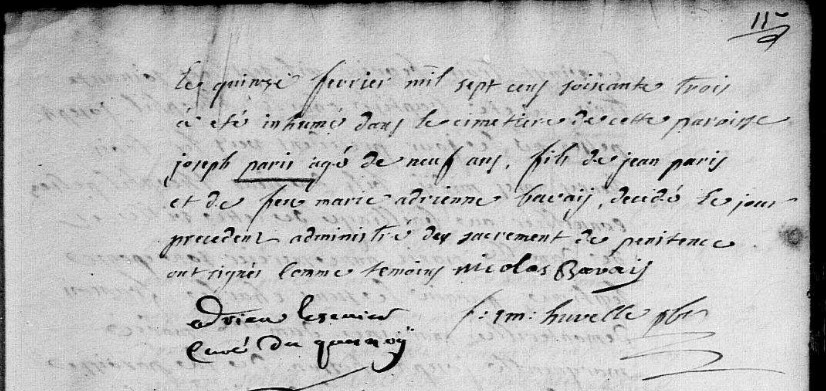 15
le quinse fevrier mil sept cens soisante trois
a eté inhumé dans le cimetiere de cette paroisse
joseph paris agé de neuf ans, fils de jean paris
et de feue marie adrienne bavaij, decidé le jour
precedent administré des sacrement de penitence
ont signés comme temoins nicolas Bavaij
adrien
f: m: huvelle pbr
curé du quesnoÿ